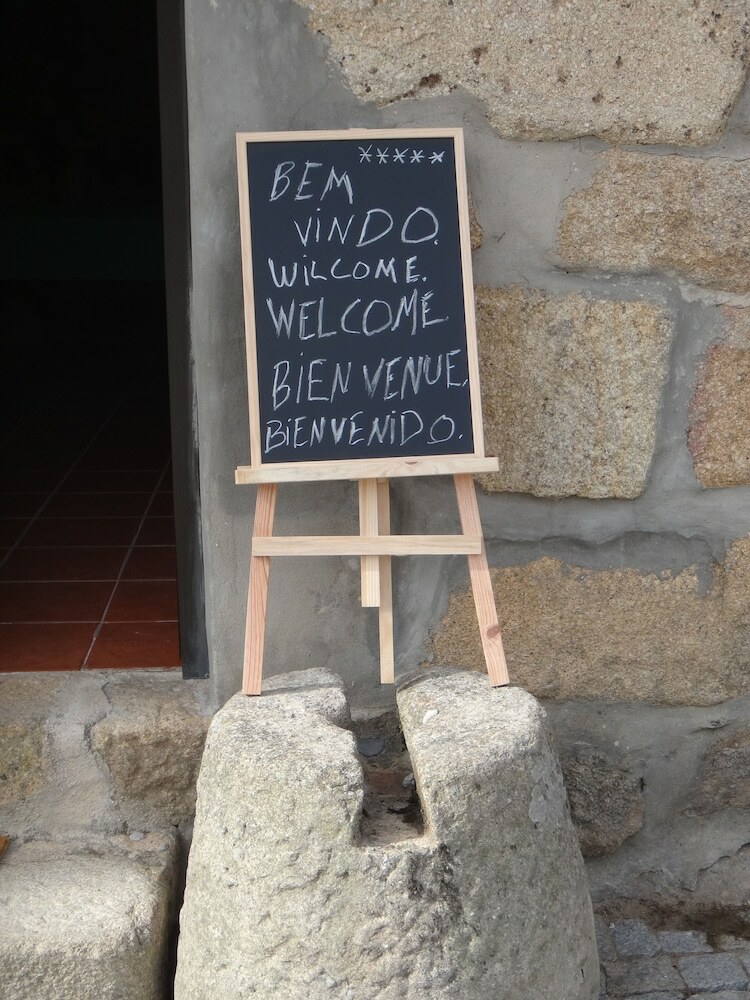 *****
BEM
VINDO.
WILCOME.
WELCOME.
BIEN VENUE.
BIENVENIDO.